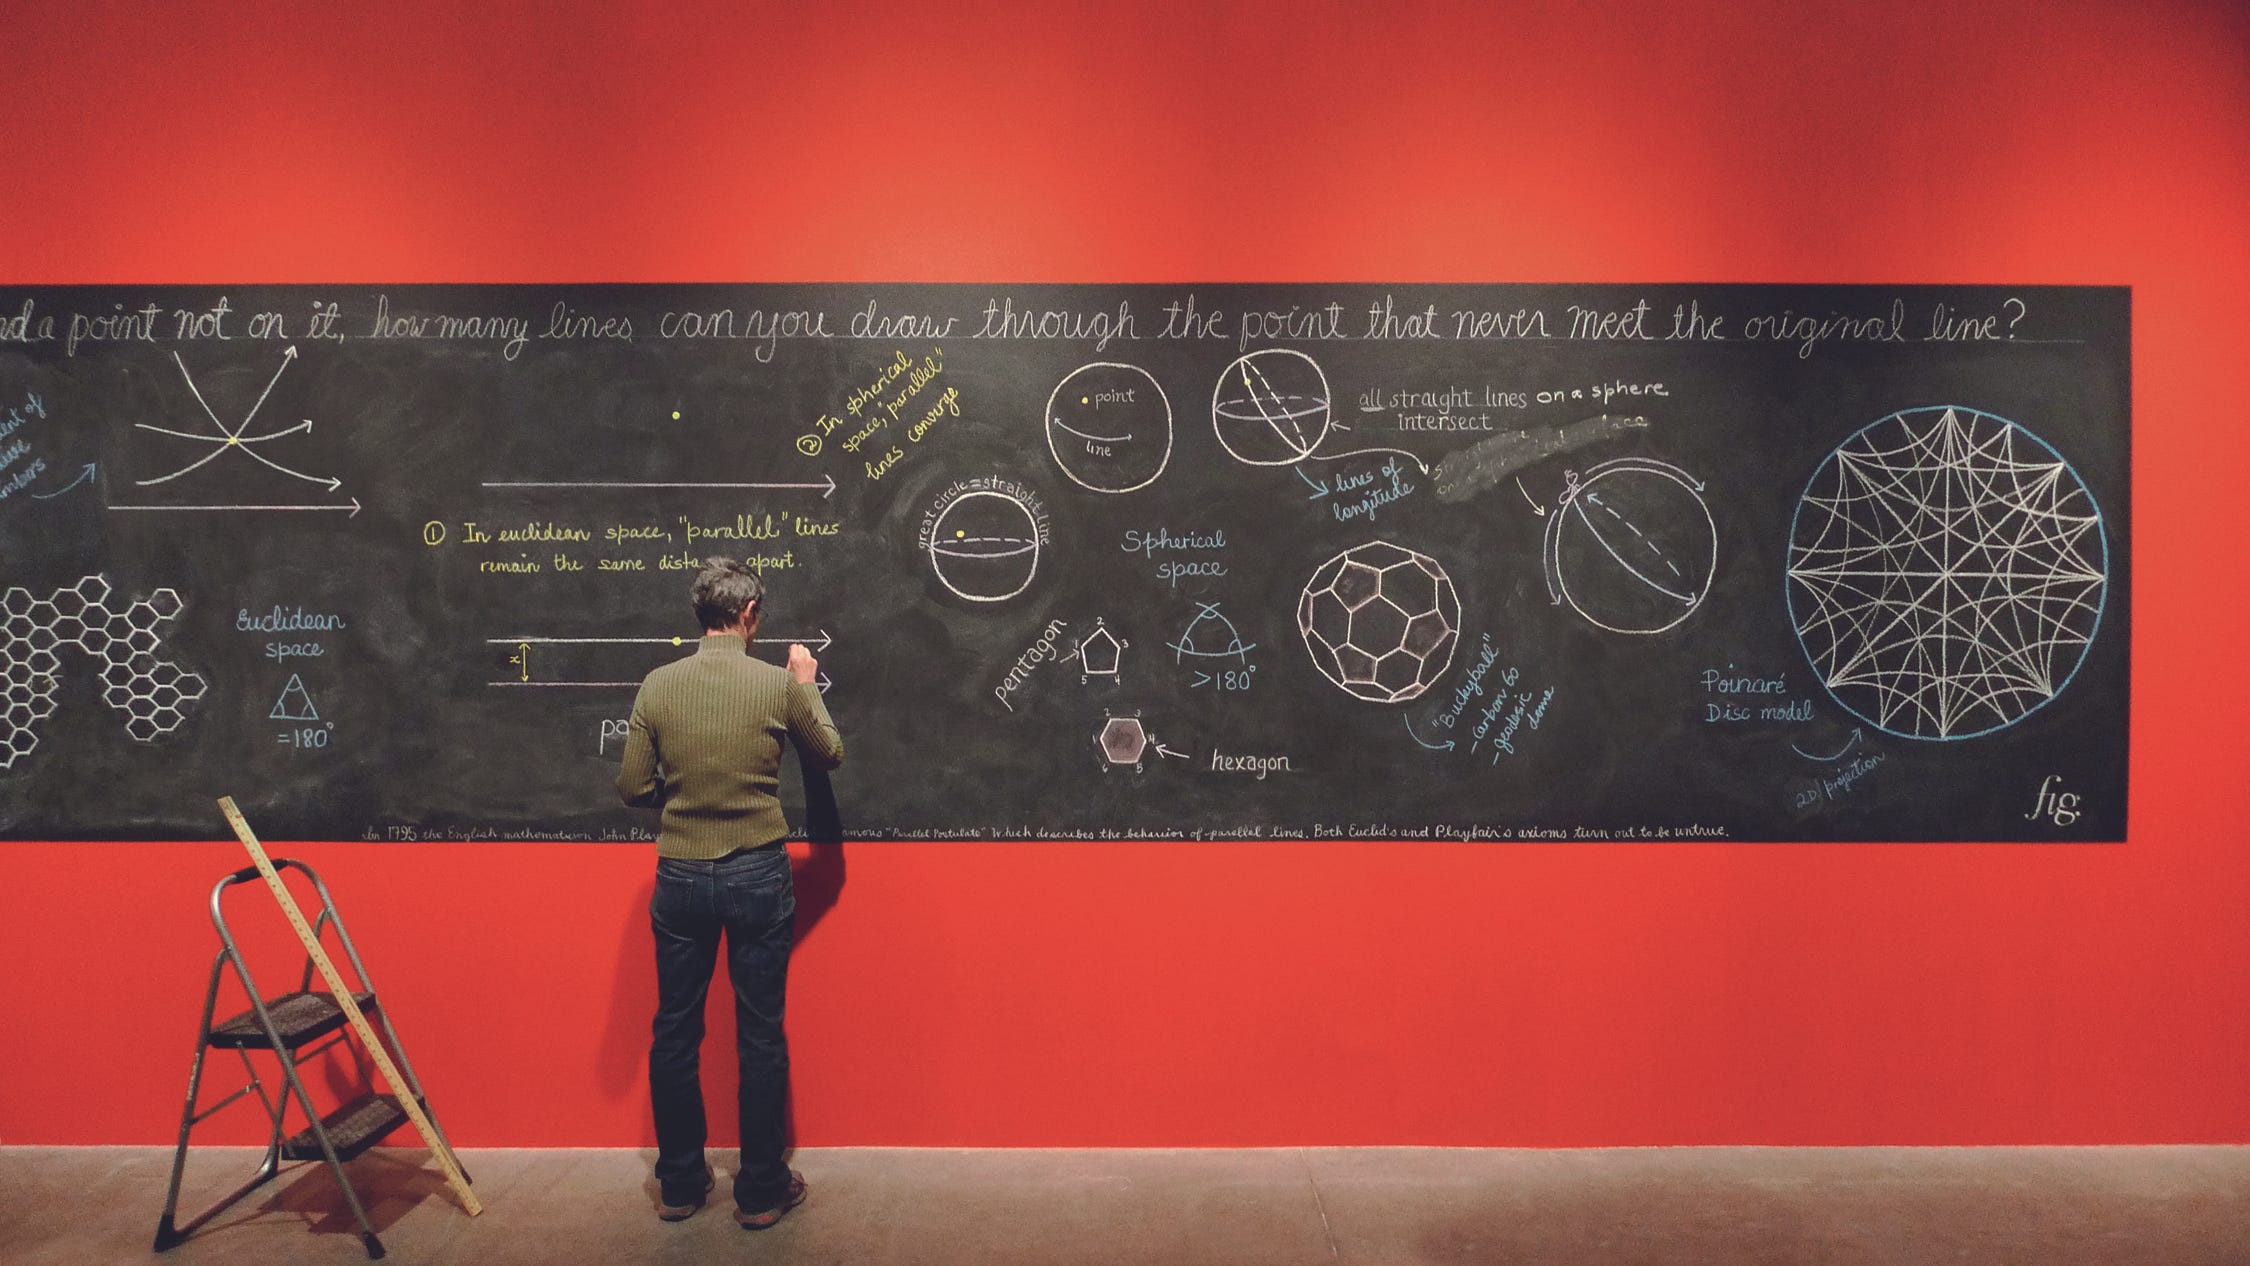 a point not on it, how many lines can you draw through the point that never meet the original line?
① In euclidean space, "parallel" lines
remain the same apart.
Euclidean
space
=180°
x
② In spherical
space, "parallel"
lines converge
great circle = straight line
point
line
all straight lines on a sphere
intersect
lines of
longitude
Spherical
space
>180°
pentagon
1
2
3
4
5
hexagon
1
2
3
4
5
6
"Buckyball"
- carbon 60
- geodesic
dome
Poinaré
Disc model
2D projection
fig.
In 1795 the English mathematician John "Parallel Postulate" which describes the behavior of parallel lines. Both Euclid's and Playfair's axioms turn out to be untrue.